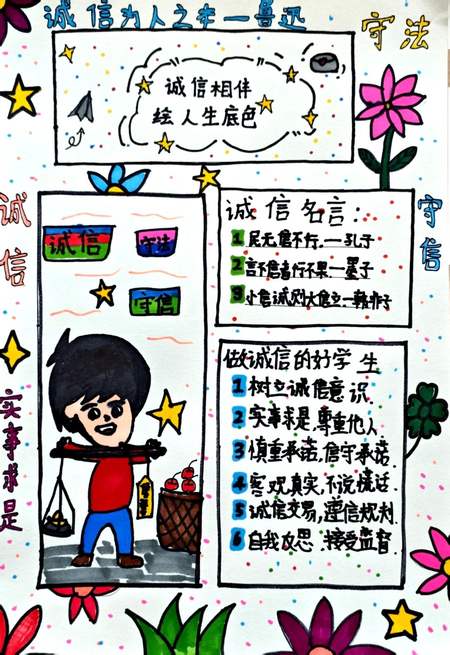 诚信为人之本一鲁迅
守法
诚信相伴
绘人生底色
诚信
守信
诚信
守法
守信
实事求是
诚信名言:
1 民无信不行.一孔子
2 言不信者行不果一墨子
3 小信诚则大信立一韩非子
做诚信的好学生
1 树立诚信意识
2 实事求是,尊重他人
3 慎重承诺,信守承诺
4 客观真实,不说谎话
5 诚信交易,遵信规则
6 自我反思 接受监督